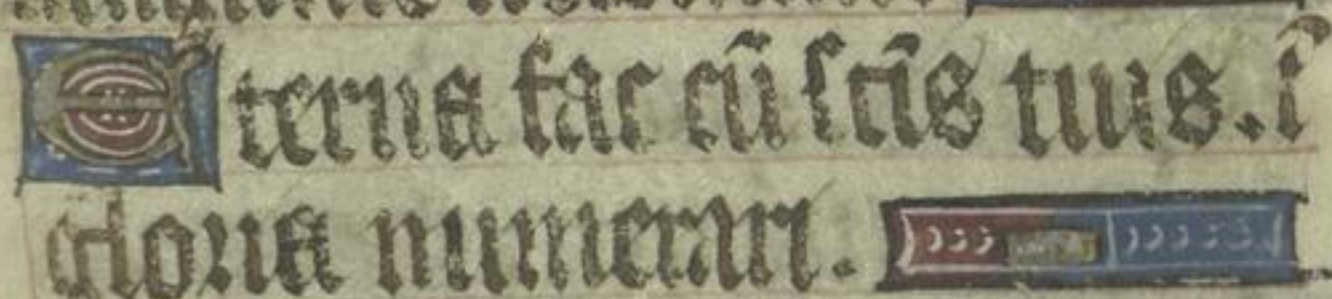 Eterna fac cũ sc̃is tuis. ĩ
gloria numerari.